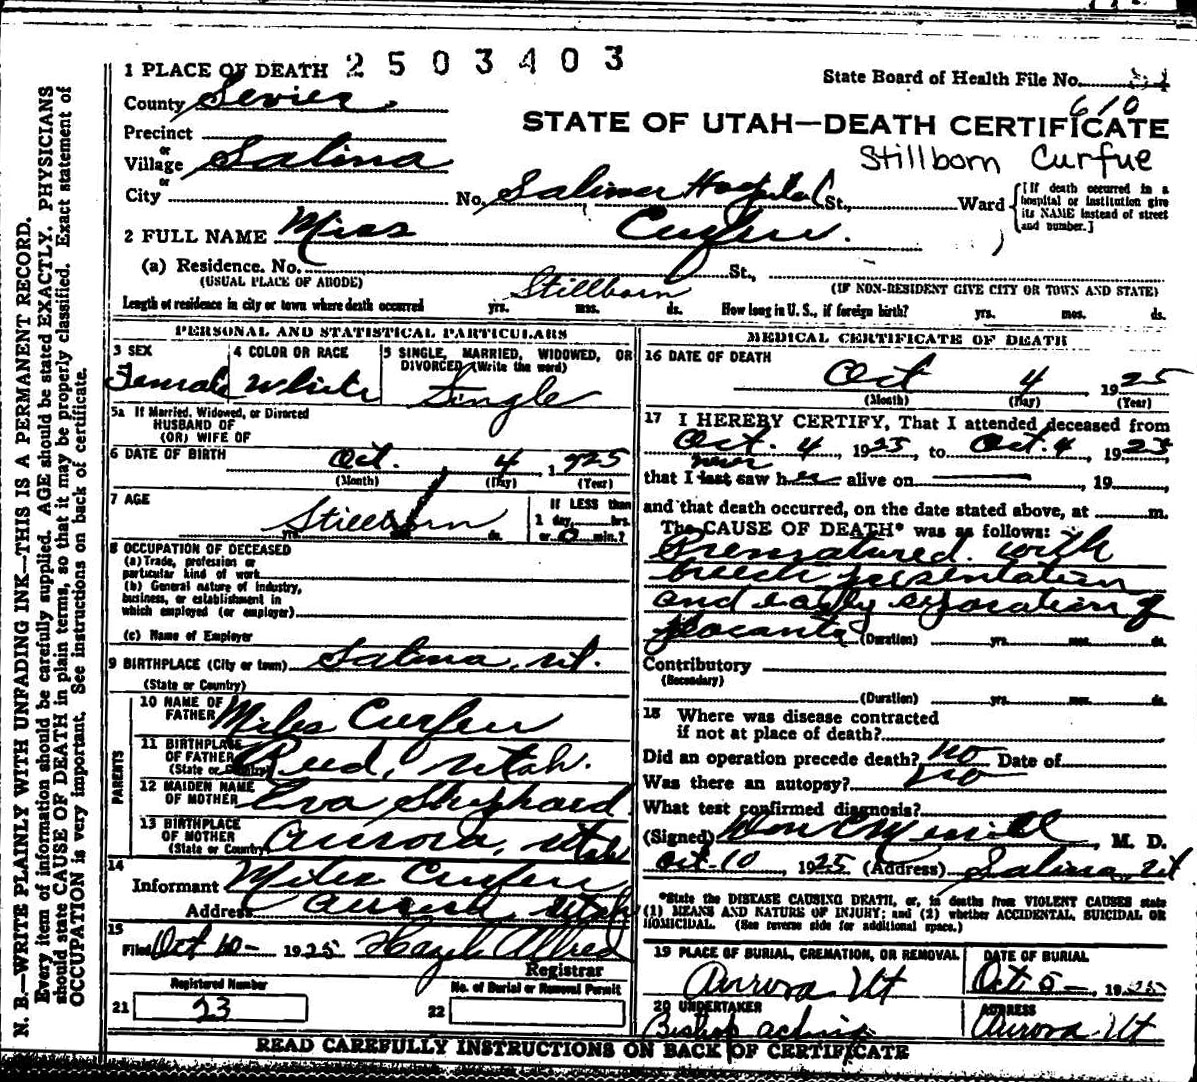 1 PLACE OF DEATH 2503403
State Board of Health File No.
County Sevier.
610
STATE OF UTAH—DEATH CERTIFICATE
Precinct
or
Village Salina
Stillborn Curfue
or
City
No. Salina Hospital St., Ward
[If death occurred in a hospital or institution give its NAME instead of street and number.]
2 FULL NAME Miss Curfew.
(a) Residence. No. St.,
(USUAL PLACE OF ABODE)
(IF NON-RESIDENT GIVE CITY OR TOWN AND STATE)
Stillborn
Length of residence in city or town where death occurred yrs. mos. ds. How long in U. S., if foreign birth? yrs. mos. ds.
PERSONAL AND STATISTICAL PARTICULARS
3 SEX
Female
4 COLOR OR RACE
White
5 SINGLE, MARRIED, WIDOWED, OR
DIVORCED (Write the word)
Single
5a If Married, Widowed, or Divorced
HUSBAND OF
(OR) WIFE OF
6 DATE OF BIRTH Oct. 4 1925
(Month) (Day) (Year)
7 AGE
Stillborn
yrs. ds.
If LESS than
1 day, hrs.
or 0 min.?
8 OCCUPATION OF DECEASED
(a) Trade, profession or
particular kind of work
(b) General nature of industry,
business, or establishment in
which employed (or employer)
(c) Name of Employer
9 BIRTHPLACE (City or town) Salina, Ut.
(State or Country)
PARENTS
10 NAME OF
FATHER Miles Curfew
11 BIRTHPLACE
OF FATHER
(State or Country) Reed, Utah.
12 MAIDEN NAME
OF MOTHER Eva Shephard
13 BIRTHPLACE
OF MOTHER
(State or Country) Aurora, Utah
14
Informant Miles Curfew
Address Aurora Utah
15
Filed Oct 10 - 1925 Hazel Allred
Registrar
Registered Number
21 23
No. of Burial or Removal Permit
22
MEDICAL CERTIFICATE OF DEATH
16 DATE OF DEATH
Oct 4 1925
(Month) (Day) (Year)
17 I HEREBY CERTIFY, That I attended deceased from
Oct. 4 1925, to Oct. 4, 1925,
never
that I last saw her alive on , 19 ,
and that death occurred, on the date stated above, at m.
The CAUSE OF DEATH* was as follows:
Prematured. with
breech presentation
and early
placenta
(Duration) yrs. mos. ds.
Contributory
(Secondary)
(Duration) yrs. mos. ds.
18 Where was disease contracted
if not at place of death?
Did an operation precede death? no Date of
Was there an autopsy? no
What test confirmed diagnosis?
(Signed) Don C Merrill, M. D.
Oct-10, 1925 (Address) Salina, Ut
*State the DISEASE CAUSING DEATH, or, in deaths from VIOLENT CAUSES state
(1) MEANS AND NATURE OF INJURY; and (2) whether ACCIDENTAL, SUICIDAL OR
HOMICIDAL. (See reverse side for additional space.)
19 PLACE OF BURIAL, CREMATION, OR REMOVAL
Aurora Ut
DATE OF BURIAL
Oct 5 -, 1925
20 UNDERTAKER
Bishop acting
ADDRESS
Aurora Ut
READ CAREFULLY INSTRUCTIONS ON BACK OF CERTIFICATE
N. B.—WRITE PLAINLY WITH UNFADING INK—THIS IS A PERMANENT RECORD.
Every item of information should be carefully supplied. AGE should be stated EXACTLY. PHYSICIANS
should state CAUSE OF DEATH in plain terms, so that it may be properly classified. Exact statement of
OCCUPATION is very important. See instructions on back of certificate.